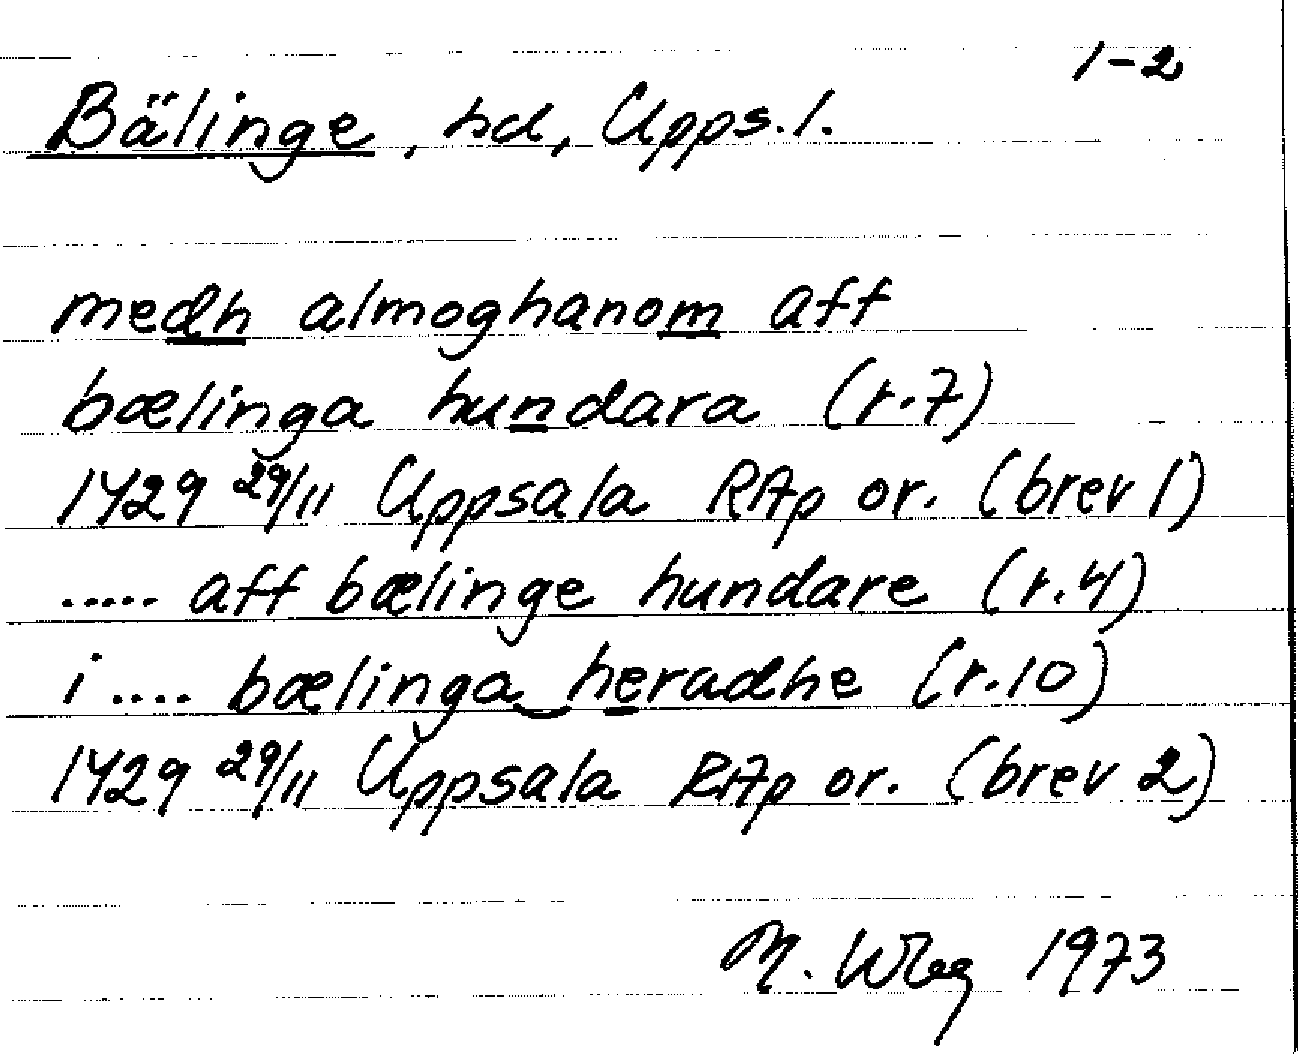 1-2
Bälinge, hd, Upps.l.
medh almoghanom aff
bælinga hundara (r.7)
1429 29/11 Uppsala RAp or. (brev 1)
..... aff bælinge hundare (r.4)
i .... bælinga heradhe (r.10)
1429 29/11 Uppsala RAp or. (brev 2)
M. Wbg 1973